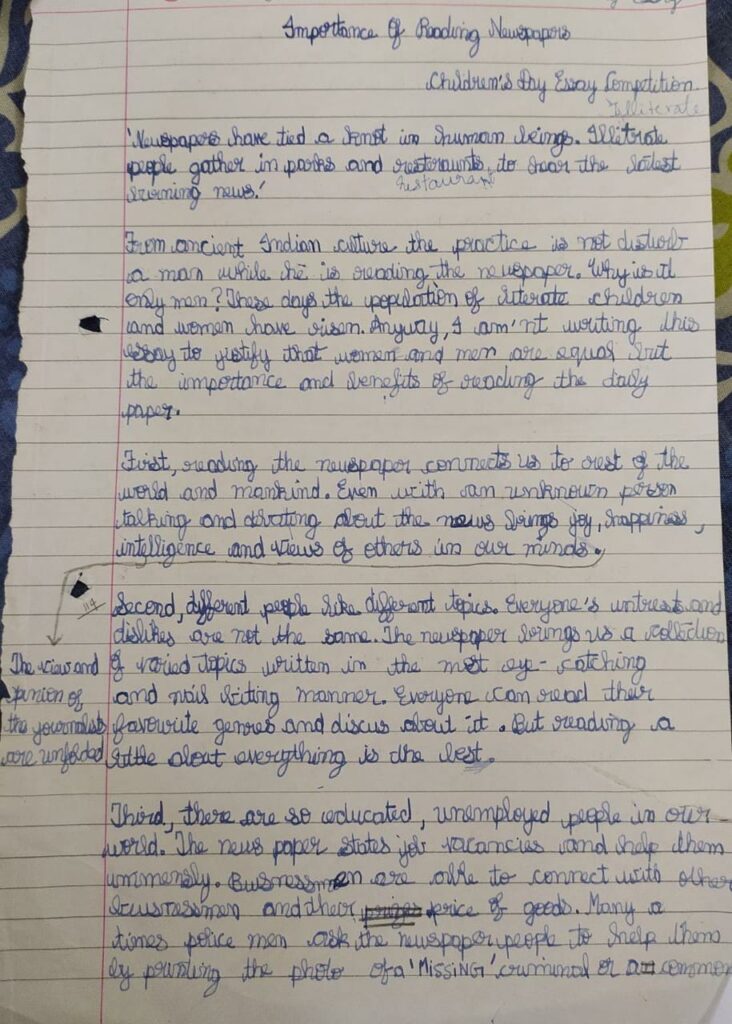 Importance Of Reading Newspapers
Children's Day Essay Competition
Illiterate
'Newspapers have tied a knot in human beings. Illitrate
people gather in parks and resteraunts, to hear the latest
restaurant
burning news.'
From ancient Indian culture the practice is not disturb
a man while he is reading the newspaper. Why is it
only men? These days the population of literate children
and women have risen. Anyway, I am'nt writing this
essay to justify that women and men are equal but
the importance and benefits of reading the daily
paper.
First, reading the newspaper connects us to rest of the
world and mankind. Even with an unknown person
talking and about the news brings joy, happiness,
intelligence and views of others in our minds.
114
Second, different people like different topics. Everyone's untrests and
dislikes are not the same. The newspaper brings us a collection
The view and
of varied topics written in the most eye-catching
opinion of
and nail biting manner. Everyone can read their
the journalists
favourite genres and discus about it. But reading a
are unfolded
little about everything is the best.
Third, there are so educated, unemployed people in our
world. The news paper states job vacancies and help them
immensly. Businessmen are able to connect with other
businessmen and their price of goods. Many a
times police men ask the newspaper people to help them
by printing the photo of a 'MISSING' criminal or a common